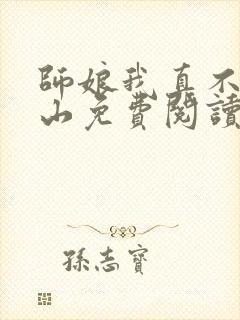 師娘我真不
山免費閱讀
孫志寶